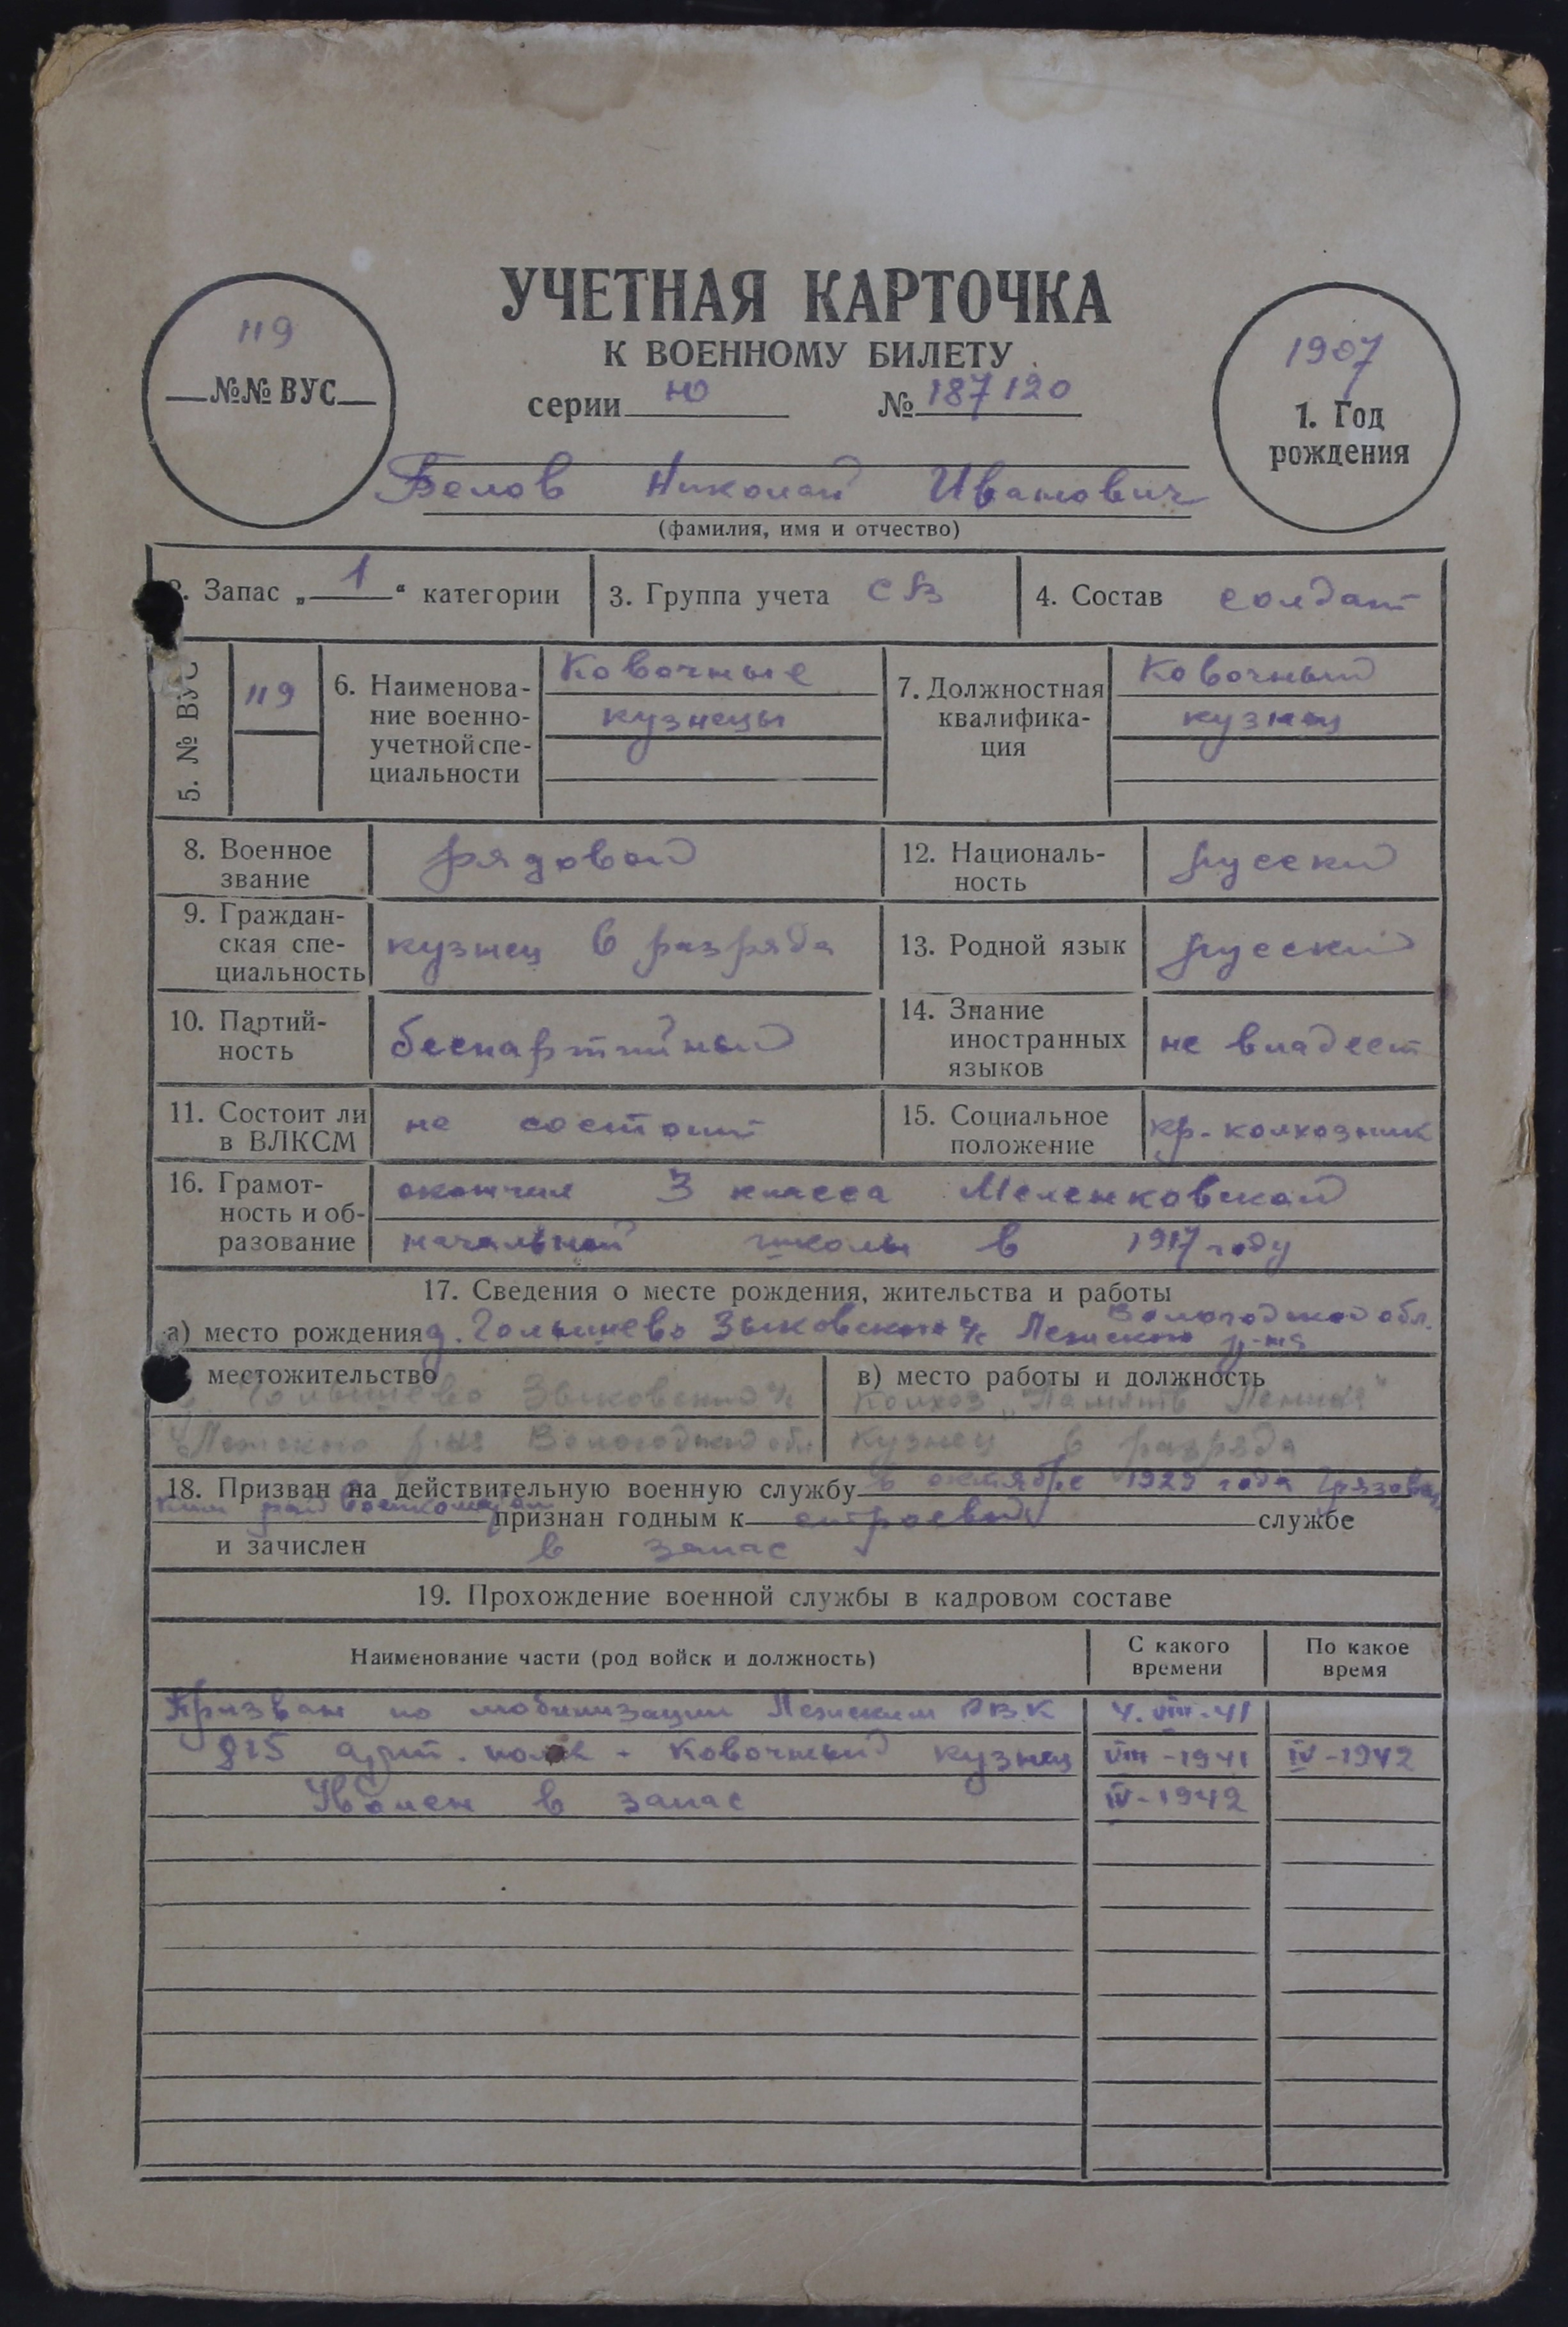 УЧЕТНАЯ КАРТОЧКА
К ВОЕННОМУ БИЛЕТУ
серии Ю № 187120
119
№№ ВУС
1907
1. Год
рождения
Белов Николай Иванович
(фамилия, имя и отчество)
2. Запас „1“ категории
3. Группа учета СВ
4. Состав солдат
5. № ВУС
119
6. Наименова-
ние военно-
учетной спе-
циальности
Ковочные
кузнецы
7. Должностная
квалифика-
ция
Ковочный
кузнец
8. Военное
звание
рядовой
12. Националь-
ность
русский
9. Граждан-
ская спе-
циальность
кузнец 6 разряда
13. Родной язык
русский
10. Партий-
ность
беспартийный
14. Знание
иностранных
языков
не владеет
11. Состоит ли
в ВЛКСМ
не состоит
15. Социальное
положение
кр-колхозник
16. Грамот-
ность и об-
разование
окончил 3 класса Меленковской
начальной школы в 1917 году
17. Сведения о месте рождения, жительства и работы
Вологодской обл.
а) место рождения д. Голышнево Зыковского с/с Лежского р-на
местожительство
Зыковский с/с
Лежского р-на Вологодской обл.
в) место работы и должность
Колхоз „Память Ленина"
Кузнец 6 разряда
18. Призван на действительную военную службу в октябре 1929 года Грязовец
ким рай военкоматом признан годным к строевой службе
и зачислен в запас
19. Прохождение военной службы в кадровом составе
Наименование части (род войск и должность)
С какого
времени
По какое
время
Призван по мобилизации Лежским РВК 4.VIII-41
815 арт. полк - Ковочный кузнец VIII-1941 IV-1942
Уволен в запас IV-1942